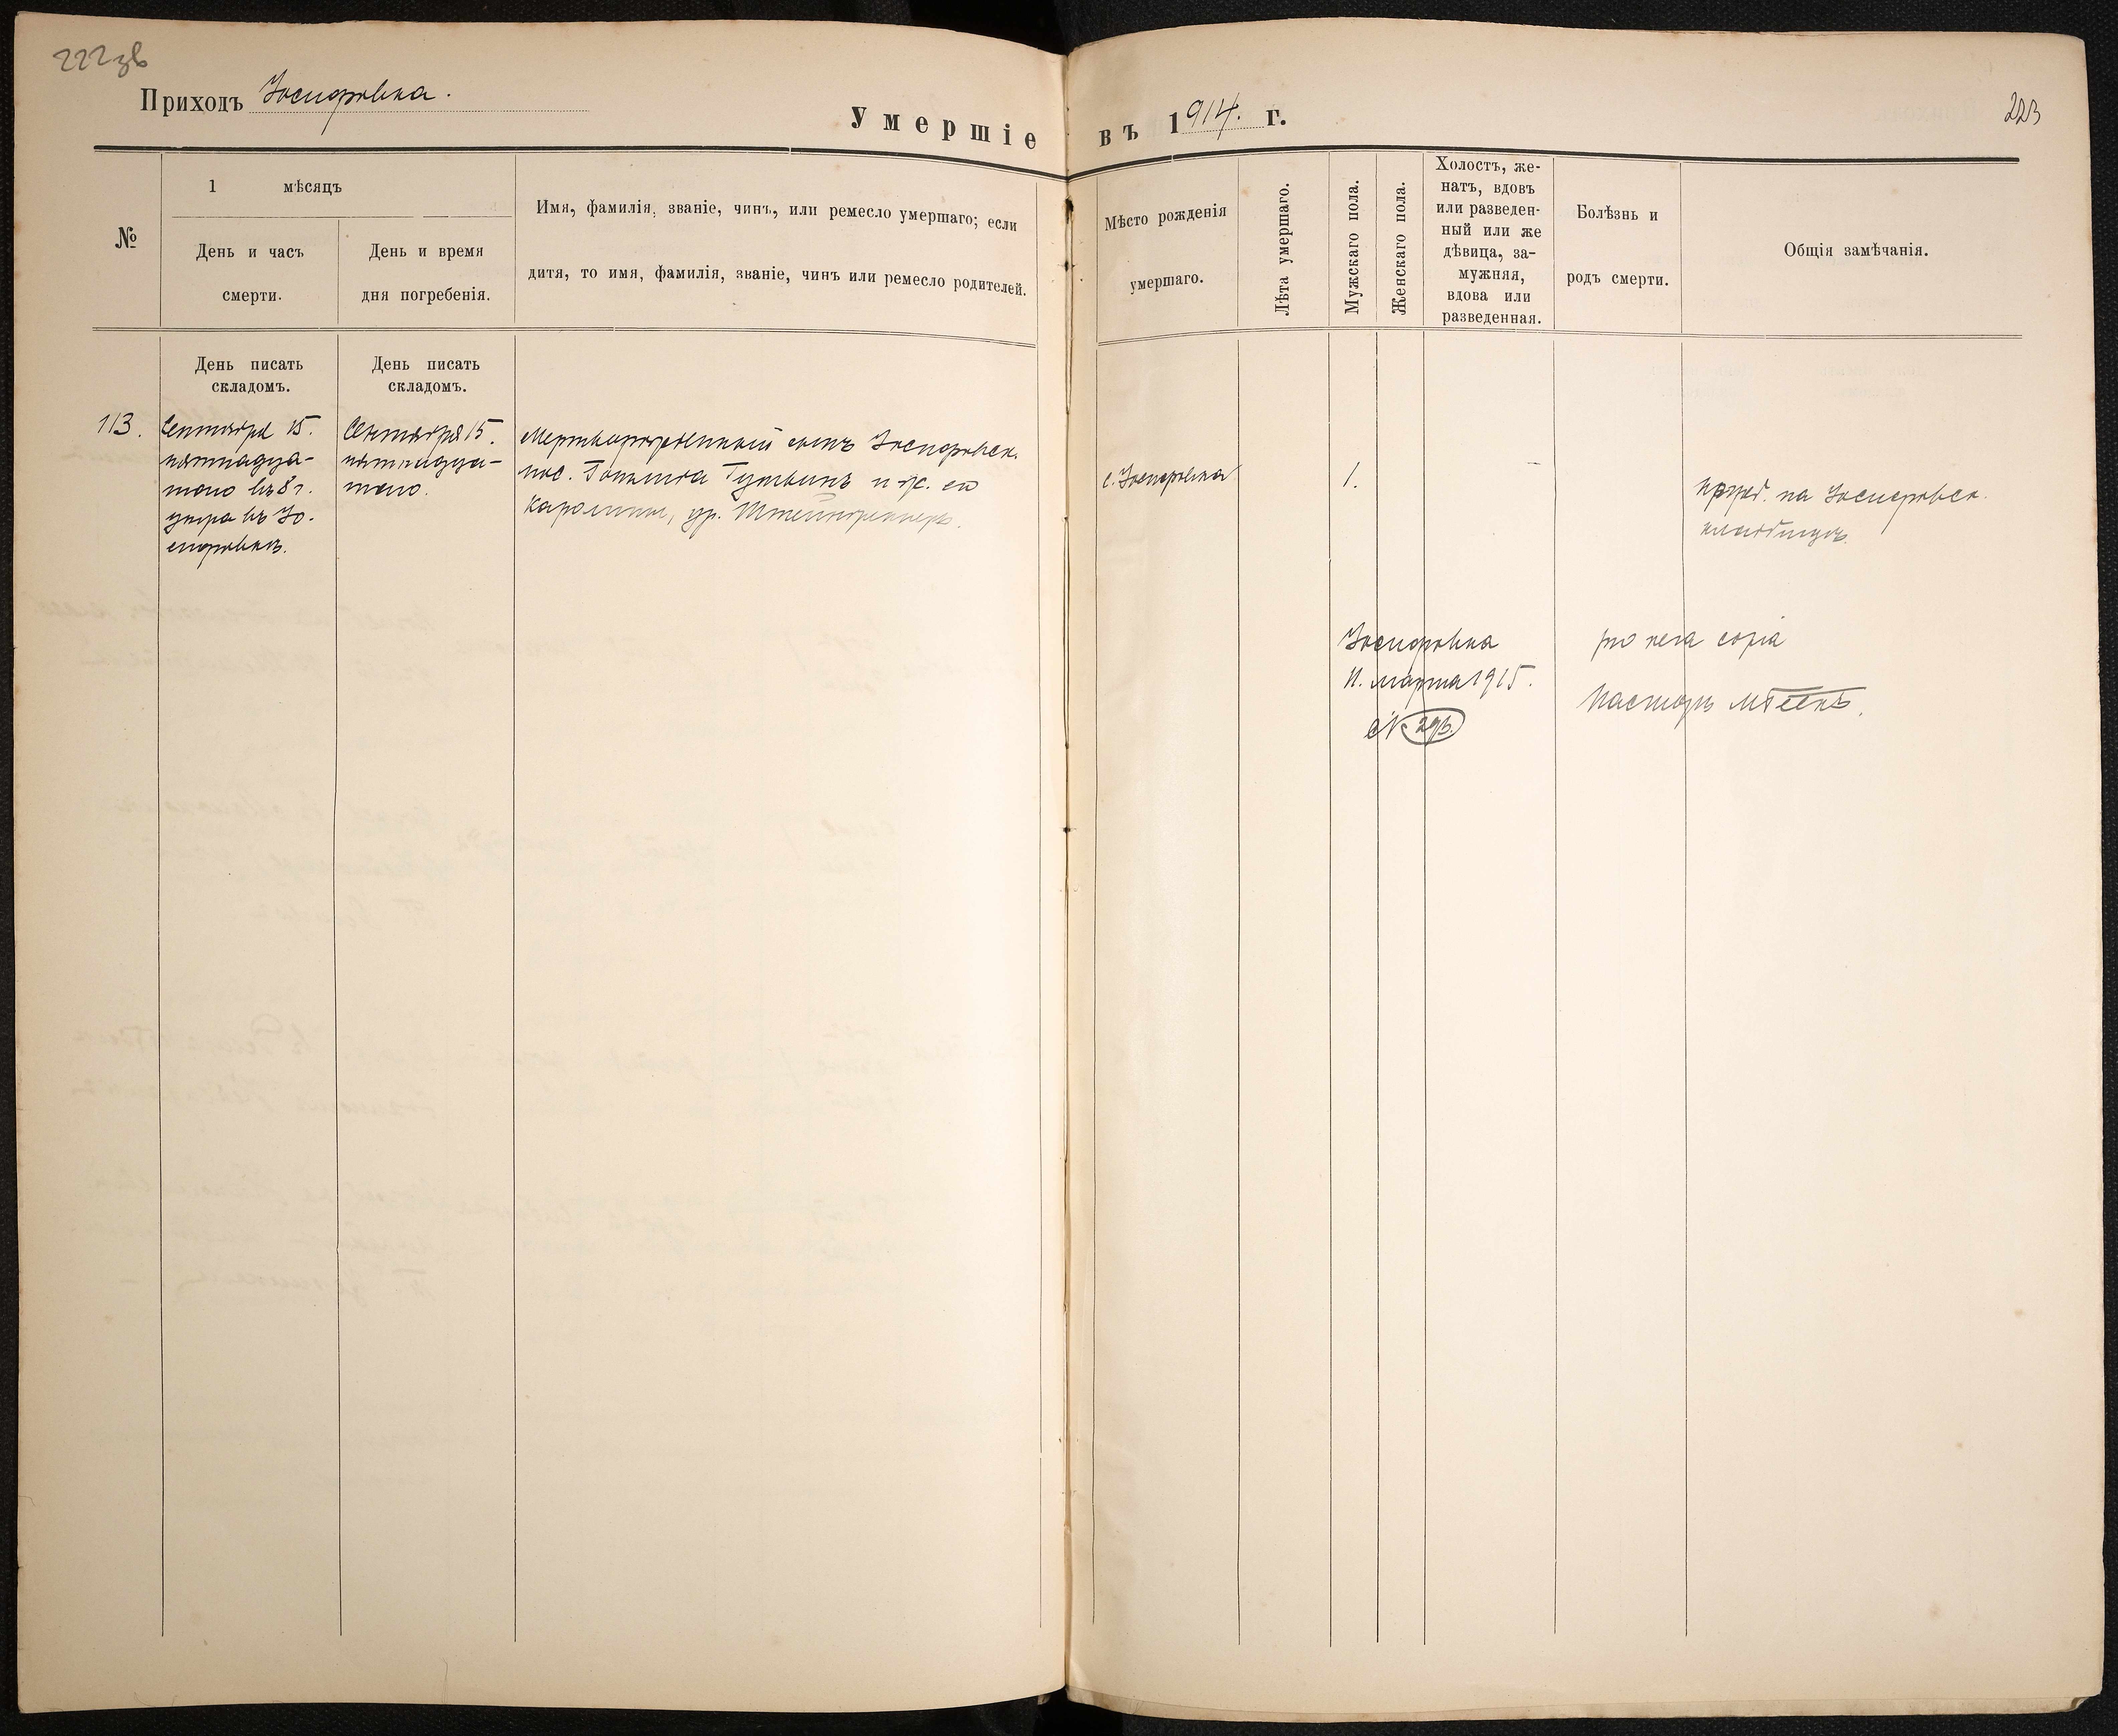 222зв
Приходъ Іосифовка.
Умершіе въ 1914. г.
223
№
1 мѣсяцъ
День и часъ
смерти.
День и время
дня погребенія.
Имя, фамилія, званіе, чинъ, или ремесло умершаго; если
дитя, то имя, фамилія, званіе, чинъ или ремесло родителей.
Мѣсто рожденія
умершаго.
Лѣта умершаго.
Мужскаго пола.
Женскаго пола.
Холостъ, же-
натъ, вдовъ
или разведен-
ный или же
дѣвица, за-
мужняя,
вдова или
разведенная.
Болѣзнь и
родъ смерти.
Общія замѣчанія.
День писать
складомъ.
День писать
складомъ.
113.
Сентября 15.
пятнадца-
таго въ 8 г.
утра въ Іо-
сифовкѣ.
Сентября 15.
пятнадца-
таго.
Мертворожденный сынъ Іосифовск.
пос. Готлиба и ж. его
Каролины, ур.
с. Іосифовка
1.
–
погреб. на Іосифовск.
кладбищѣ.
Іосифовка
11. марта 1915.
№ 293.
pro vera copia
Пасторъ